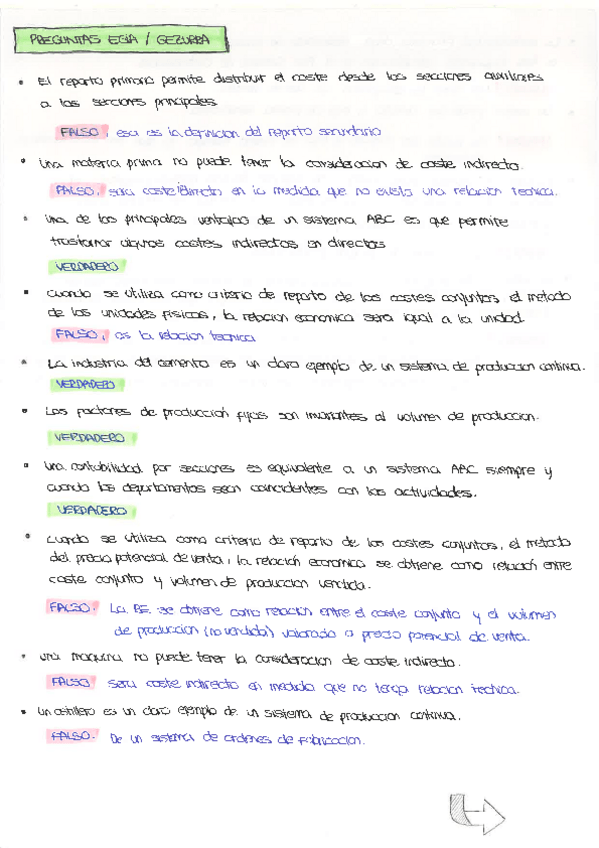 PREGUNTAS EGIA / GEZURRA
• El reparto primario permite distribuir el coste desde las secciones auxiliares
a las secciones principales
FALSO, esa es la definicion del reparto secundario
• Una materia prima no puede tener la consideracion de coste indirecto.
FALSO, sera coste indirecto en la medida que no exista una relacion tecnica.
• Una de las principales ventajas de un sistema ABC es que permite
trasformar algunos costes indirectos en directos
VERDADERO
• Cuando se utiliza como criterio de reparto de los costes conjuntos, el metodo
de las unidades fisicas, la relacion economica sera igual a la unidad.
FALSO, es la relacion tecnica
• La industria del cemento es un claro ejemplo de un sistema de produccion continua.
VERDADERO
• Los factores de producción fijos son invariantes al volumen de produccion.
VERDADERO
• Una contabilidad por secciones es equivalente a un sistema ABC siempre y
cuando los departamentos sean coincidentes con las actividades.
VERDADERO
• Cuando se utiliza como criterio de reparto de los costes conjuntos, el metodo
del precio potencial de venta, la relación economica se obtiene como relación entre
coste conjunto y volumen de produccion vendida.
FALSO. La RE. se obtiene como relacion entre el coste conjunto y el volumen
de produccion (no vendida) valorado a precio potencial de venta.
• Una maquina no puede tener la consideracion de coste indirecto.
FALSO sera coste indirecto en medida que no tenga relacion tecnica.
• Un astillero es un claro ejemplo de un sistema de produccion continua.
FALSO. De un sistema de ordenes de fabricacion.